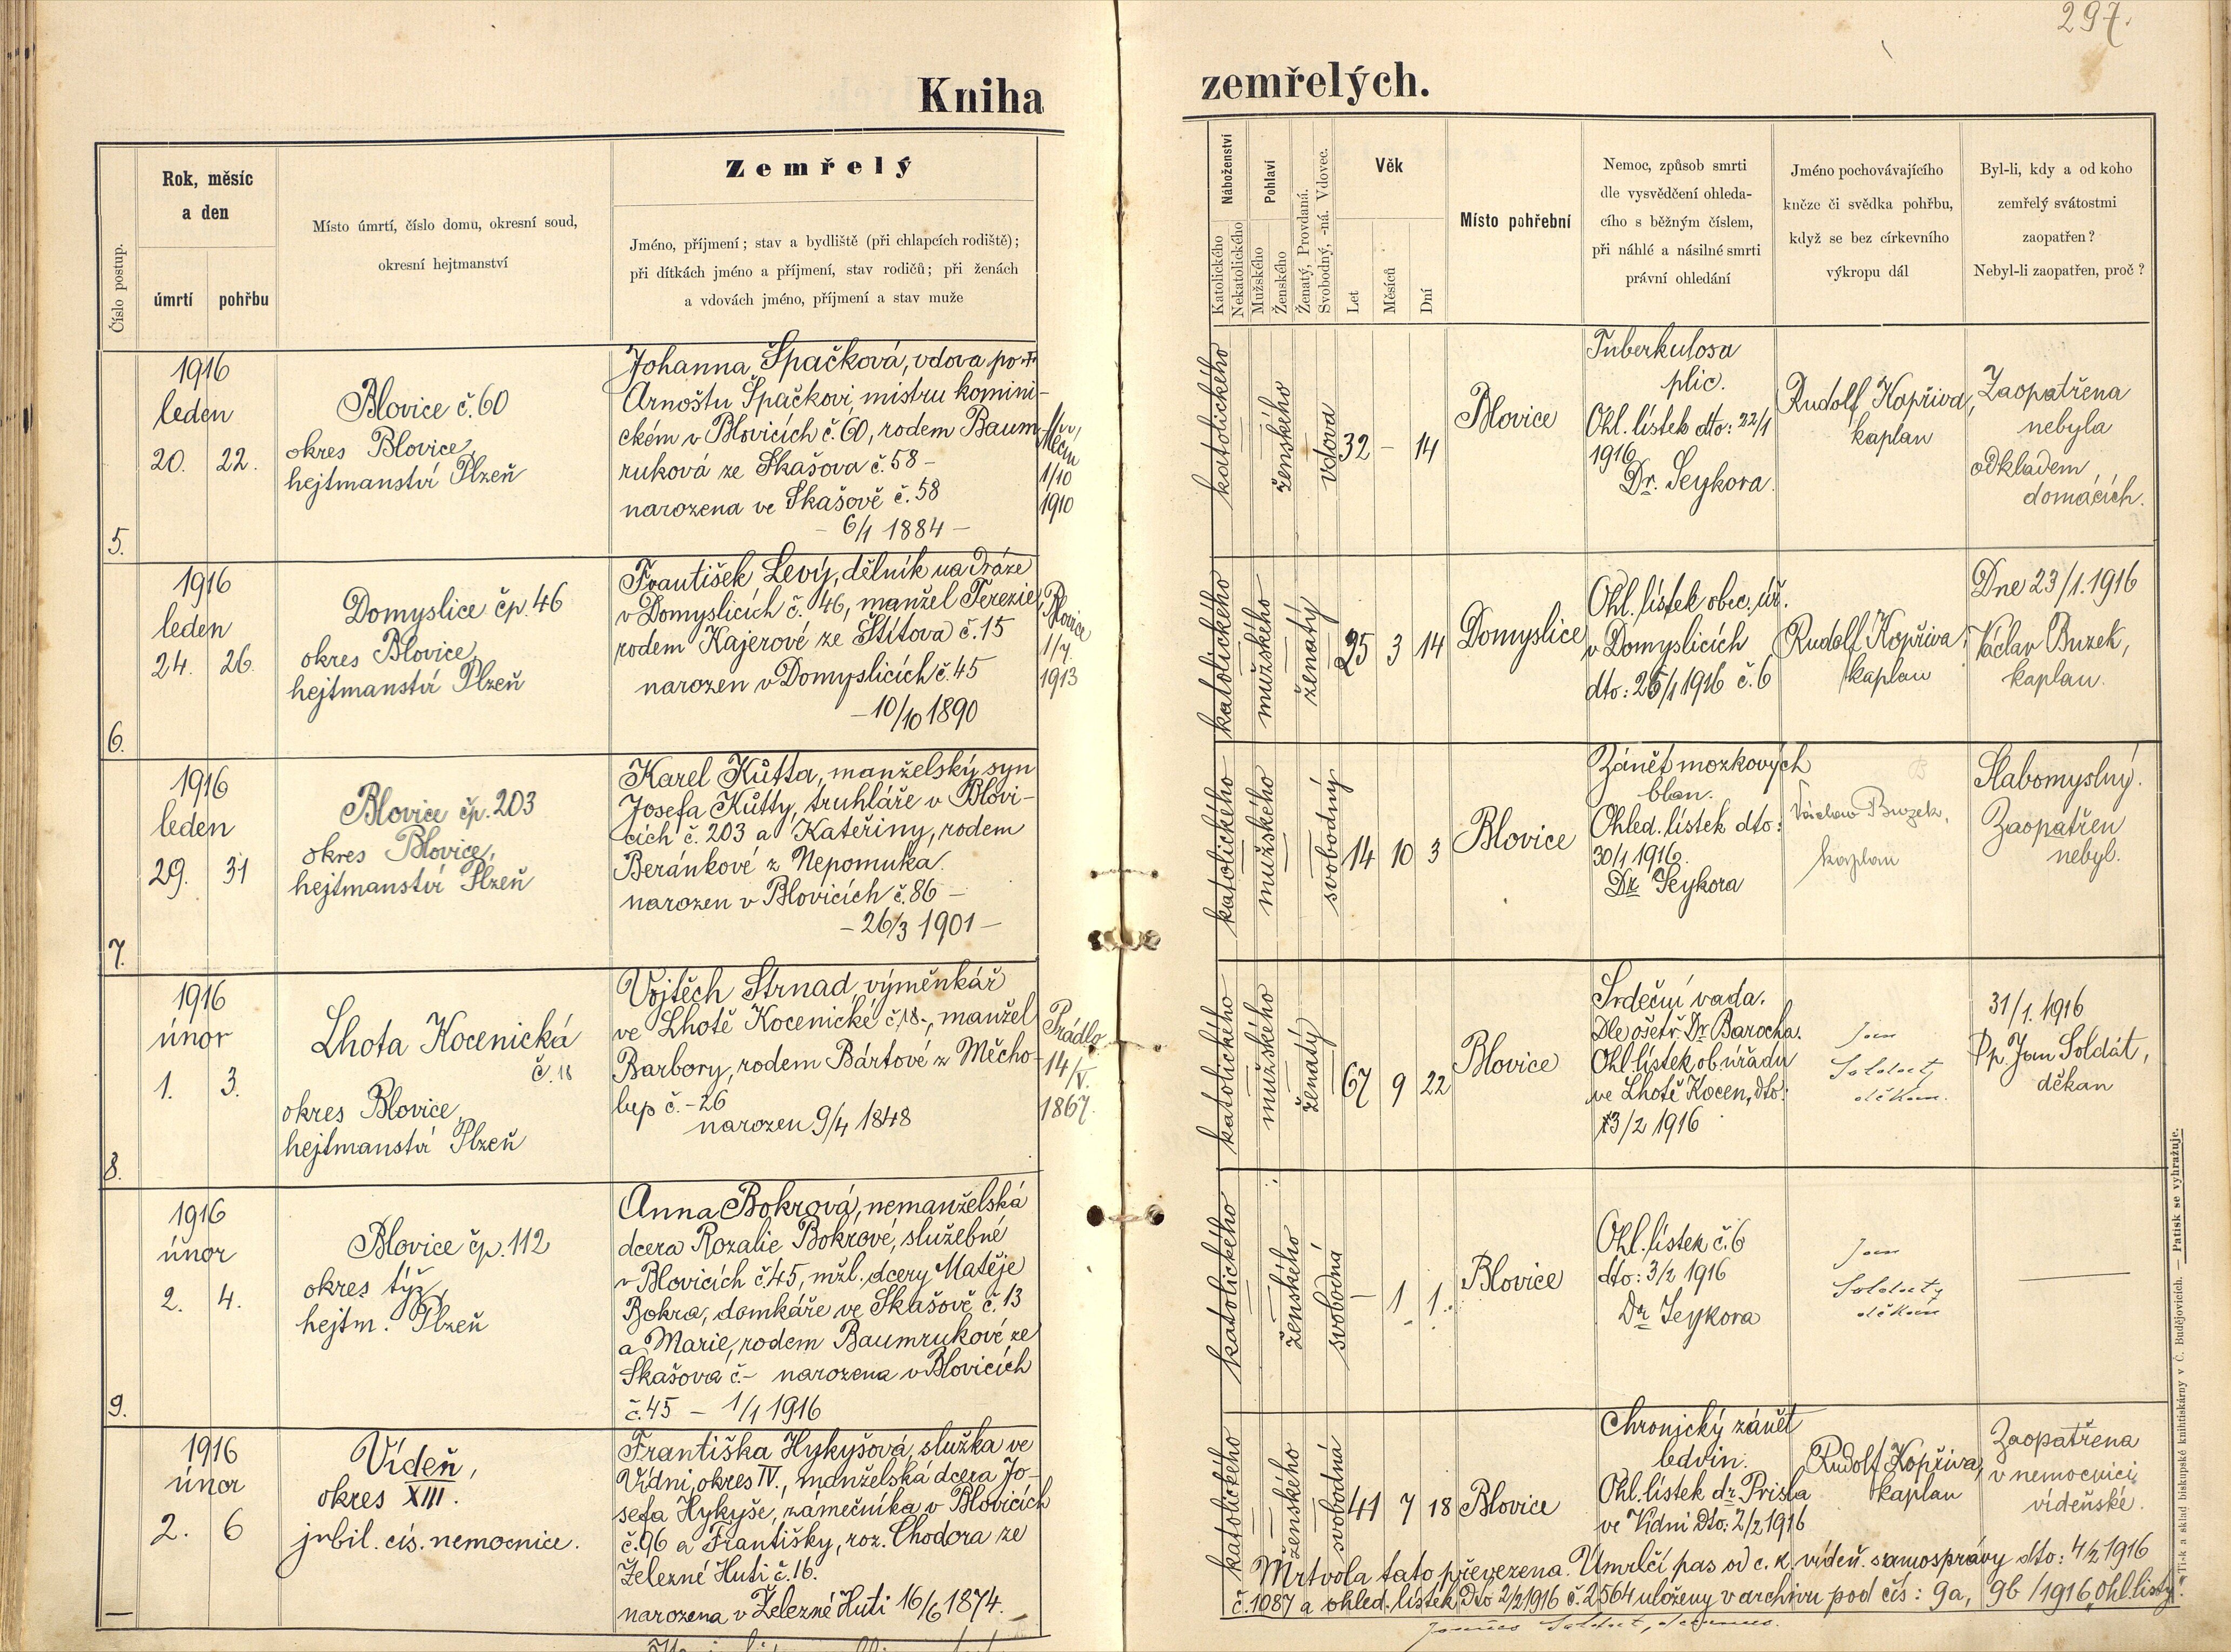 297.
Kniha zemřelých.
Číslo postup.
Rok, měsíc
a den
úmrtí
pohřbu
Místo úmrtí, číslo domu, okresní soud,
okresní hejtmanství
Zemřelý
Jméno, příjmení; stav a bydliště (při chlapcích rodiště);
při dítkách jméno a příjmení, stav rodičů; při ženách
a vdovách jméno, příjmení a stav muže
Náboženství
Katolického
Nekatolického
Pohlaví
Mužského
Ženského
Ženatý, Provdaná.
Svobodný, -ná. Vdovec.
Věk
Let
Měsíců
Dní
Místo pohřební
Nemoc, způsob smrti
dle vysvědčení ohleda-
cího s běžným číslem,
při náhlé a násilné smrti
právní ohledání
Jméno pochovávajícího
kněze či svědka pohřbu,
když se bez církevního
výkropu dál
Byl-li, kdy a od koho
zemřelý svátostmi
zaopatřen?
Nebyl-li zaopatřen, proč?
5.
1916
leden
20. 22.
Blovice č. 60
okres Blovice,
hejtmanství Plzeň
Johanna Špačková, vdova po †
Arnoštu Špačkovi, mistru komini-
ckém v Blovicích č. 60, rodem Baum-
ruková ze Skašova č. 58 -
narozena ve Skašově č. 58
- 6/1 1884 -
Měčín
1/10
1910
katolického
ženského
vdova
32 - 14
Blovice
Tuberkulosa
plic.
Ohl. lístek dto: 22/1
1916
Dr. Seykora.
Rudolf Kopřiva,
kaplan
Zaopatřena
nebyla
odkladem
domácích.
6.
1916
leden
24. 26.
Domyslice čp. 46
okres Blovice,
hejtmanství Plzeň
František Levý, dělník na dráze
v Domyslicích č. 46, manžel Terezie,
rodem Kajerové ze Štítova č. 15
narozen v Domyslicích č. 45
- 10/10 1890
Blovice
1/7.
1913
katolického
mužského
ženatý
25 3 14
Domyslice
Ohl. lístek obec. úř.
v Domyslicích
dto: 25/1 1916 č. 6
Rudolf Kopřiva,
kaplan
Dne 23/1. 1916
Václav Buzek,
kaplan.
7.
1916
leden
29. 31
Blovice čp. 203
okres Blovice,
hejtmanství Plzeň
Karel Kůtta, manželský syn
Josefa Kůtty, truhláře v Blovi-
cích č. 203 a Kateřiny, rodem
Beránkové z Nepomuka.
narozen v Blovicích č. 86 -
- 26/3 1901 -
katolického
mužského
svobodný
14 10 3
Blovice
Zánět mozkových
blan.
Ohled. lístek dto:
30/1 1916.
Dr Seykora
Václav Buzek,
kaplan
Slabomyslný.
Zaopatřen
nebyl.
8.
1916
únor
1. 3.
Lhota Kocenická
č. 18
okres Blovice,
hejtmanství Plzeň
Vojtěch Strnad, výměnkář
ve Lhotě Kocenické č. 18 -, manžel
Barbory, rodem Bártové z Měcho-
lup č. - 26
narozen 9/4 1848
Prádlo
14/V.
1867.
katolického
mužského
ženatý
67 9 22
Blovice
Srdeční vada.
Dle ošetř. Dr Barocha.
Ohl. lístek ob. úřadu
ve Lhotě Kocen, dto:
3/2 1916
Jan
Soldát,
děkan.
31/1. 1916
Dp. Jan Soldát,
děkan
9.
1916
únor
2. 4.
Blovice čp. 112
okres týž,
hejtm. Plzeň
Anna Bokrová, nemanželská
dcera Rozalie Bokrové, služebné
v Blovicích č. 45, mžl. dcery Matěje
Bokra, domkáře ve Skašově č. 13
a Marie, rodem Baumrukové ze
Skašova č. - narozena v Blovicích
č. 45 - 1/1 1916
katolického
ženského
svobodná
- 1 1.
Blovice
Ohl. lístek č. 6
dto: 3/2 1916
Dr Seykora
Jan
Soldát,
děkan
—
1916
únor
2. 6
Vídeň,
okres XIII.
jubil. cís. nemocnice.
Františka Hykyšová, služka ve
Vídni, okres IV., manželská dcera Jo-
sefa Hykyše, zámečníka v Blovicích
č. 96 a Františky, roz. Chodora ze
Železné Huti č. 16.
narozena v Železné Huti 16/6 1874.
katolického
ženského
svobodná
41 7 18
Blovice
Chronický zánět
ledvin.
Ohl. lístek dr Prisla
ve Vídni dto: 2/2 1916
Rudolf Kopřiva,
kaplan
Zaopatřena
v nemocnici
vídeňské.
Mrtvola tato převezena. Umrlčí pas od c. k. vídeň. samosprávy dto: 4/2 1916
č. 1087 a ohled. lístek dto 2/2 1916 č. 2564 uloženy v archivu pod čís: 9a, 9b / 1916 „Ohl. listy."
Tisk a sklad biskupské knihtiskárny v Č. Budějovicích. — Patisk se vyhražuje.